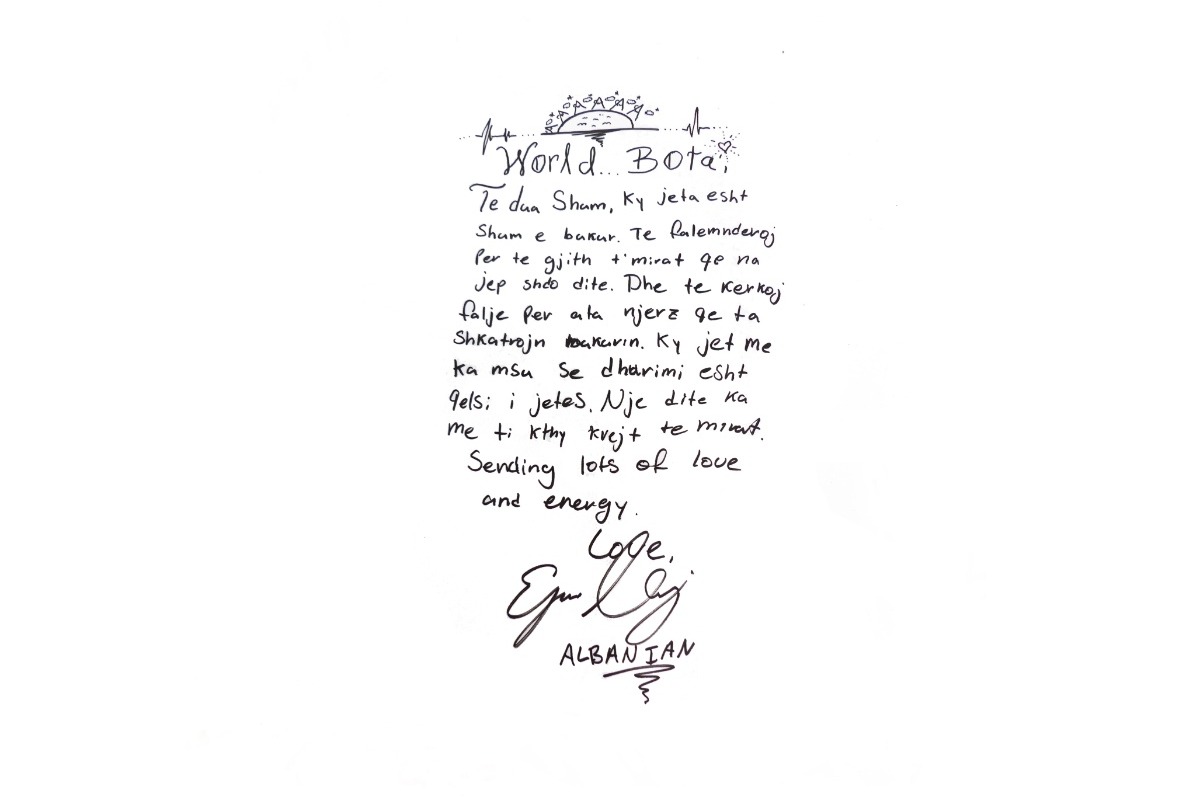 World... Bota,
Te dua Shum, Ky jeta esht
Shum e bukur. Te falemnderoj
Per te gjith t'mirat qe na
jep shdo dite. Dhe te kerkoj
falje per ata njerz qe ta
Shkatrojn bukurin. Ky jet me
ka msu se dhurimi esht
qelsi i jetes. Nje dite ka
me ti kthy krejt te mirat.
Sending lots of love
and energy.
Love,
ALBANIAN